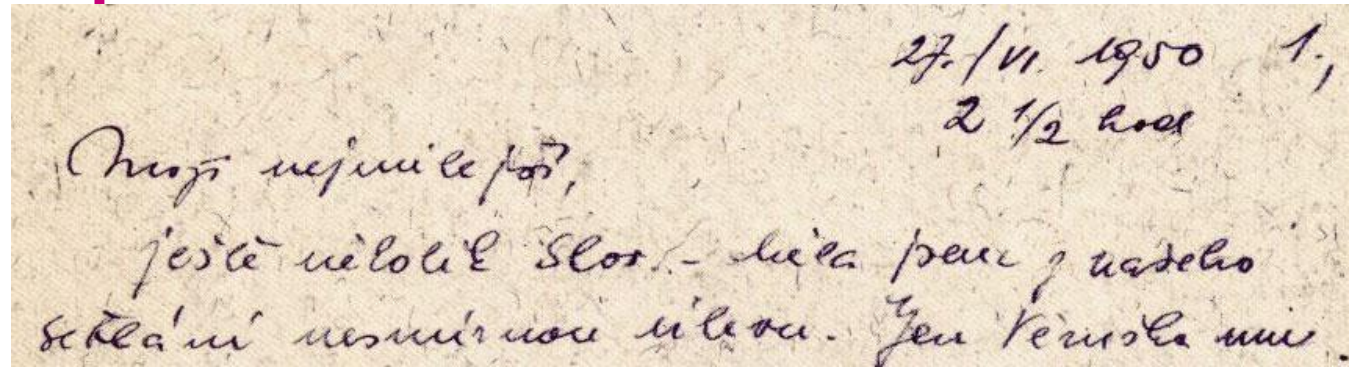 27./VI. 1950 1.,
2 1/2 hod
Moji nejmilejší,
ještě několik slov. – Měla jsem z našeho
setkání nesmírnou úlevu. Jen Veruška mne